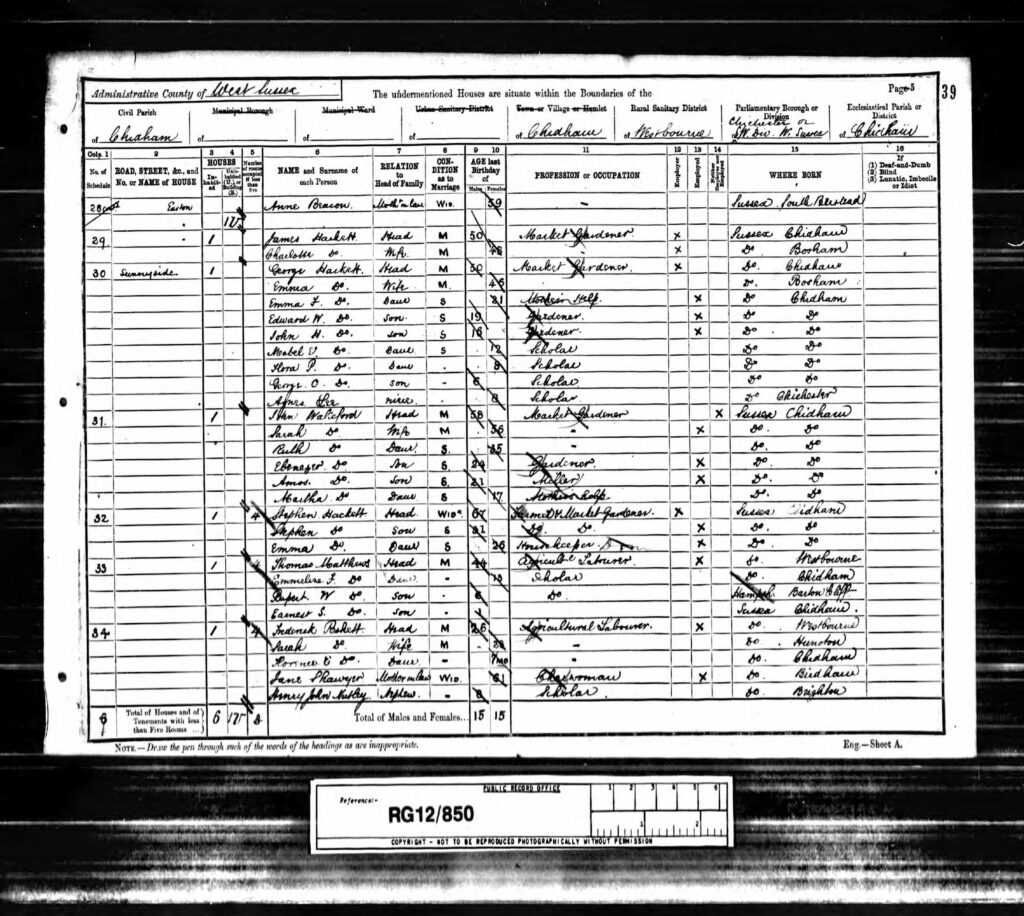 Administrative County of West Sussex The undermentioned Houses are situate within the Boundaries of the Page 5 39
Civil Parish Municipal Borough Municipal Ward Urban Sanitary District Town or Village or Hamlet Rural Sanitary District Parliamentary Borough or Division Ecclesiastical Parish or District
of Chidham of of of of Chidham of Westbourne of Chichester or S.W. Div. W. Sussex of Chidham
Cols. 1 2 3 4 5 6 7 8 9 10 11 12 13 14 15 16
No. of Schedule ROAD, STREET, &c., and No. or NAME of HOUSE HOUSES Inhabited Uninhabited (U.) or Building (B.) Number of rooms occupied if less than five NAME and Surname of each Person RELATION to Head of Family CONDITION as to Marriage AGE last Birthday of Males Females PROFESSION or OCCUPATION Employer Employed Neither Employer nor Employed WHERE BORN If (1) Deaf-and-Dumb (2) Blind (3) Lunatic, Imbecile or Idiot
28 Easton Anne Wid. 59 - Sussex South Bersted
1 U
29 1 James Hackett Head M 50 Market Gardener X Sussex Chidham
Charlotte Do Wife M 48 - X Do Bosham
30 Sunnyside 1 George Hackett Head M 50 Market Gardener X Do. Chidham
Emma Do Wife M 45 Do. Bosham
Emma F. Do. Daur S 21 Help X Do Chidham
Edward W. Do. Son S 19 Gardener. X Do Do
John H. Do. Son S 16 Gardener X Do. Do
Mabel E. Do Daur S 12 Scholar Do Do
Flora P. Do. Daur 8 Scholar Do Do
George O. Do. Son 6 Scholar Do Do
Agnes niece 8 Scholar Do Chichester
31. 1 John Head M 58 Market Gardener X Sussex Chidham
Sarah Do Wife M 56 - X Do. Do
Ruth Do Daur S. - Do. Do
Ebenezer Do Son S 24 Gardener. X Do. Do
Amos. Do Son S. 21 Miller X Do. Do
Martha Do Daur S 17 Mothers help. Do. Do
32 1 4 Stephen Hackett Head Widr 67 Farmer & Market Gardener. X Sussex Chidham
Stephen Do Son S 31 Do Do. X Do. Do
Emma Do. Daur S 26 Housekeeper X Do. Do
33 1 4 Thomas Matthews Head M 44 Agricultl Labourer X Do Westbourne
Emmeline F. Do Daur. 13 Scholar Do. Chidham
Rupert W Do Son 6 Do. Hampsh. Barton Cliff
Earnest S. Do Son - 1 Sussex Chidham.
34 1 4 Frederick Head M 26 Agricultural Labourer. X Do. Westbourne
Sarah Do. Wife M - Do Hunston
Florence E Do Daur - 7mo - Do. Chidham
Jane Mother in law Wid. 61 Charwoman X Do. Birdham
Henry John Nephew - 8 Scholar Do. Brighton
6 Total of Houses and of Tenements with less than Five Rooms 6 1U 3 Total of Males and Females... 15 15
NOTE.—Draw the pen through such of the words of the headings as are inappropriate. Eng.—Sheet A.
PUBLIC RECORD OFFICE
Reference:- RG12/850
1 2 3 4 5 6
1 2
COPYRIGHT - NOT TO BE REPRODUCED PHOTOGRAPHICALLY WITHOUT PERMISSION